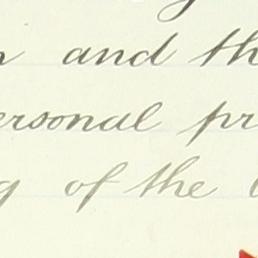 and th
ersonal pr
g of the